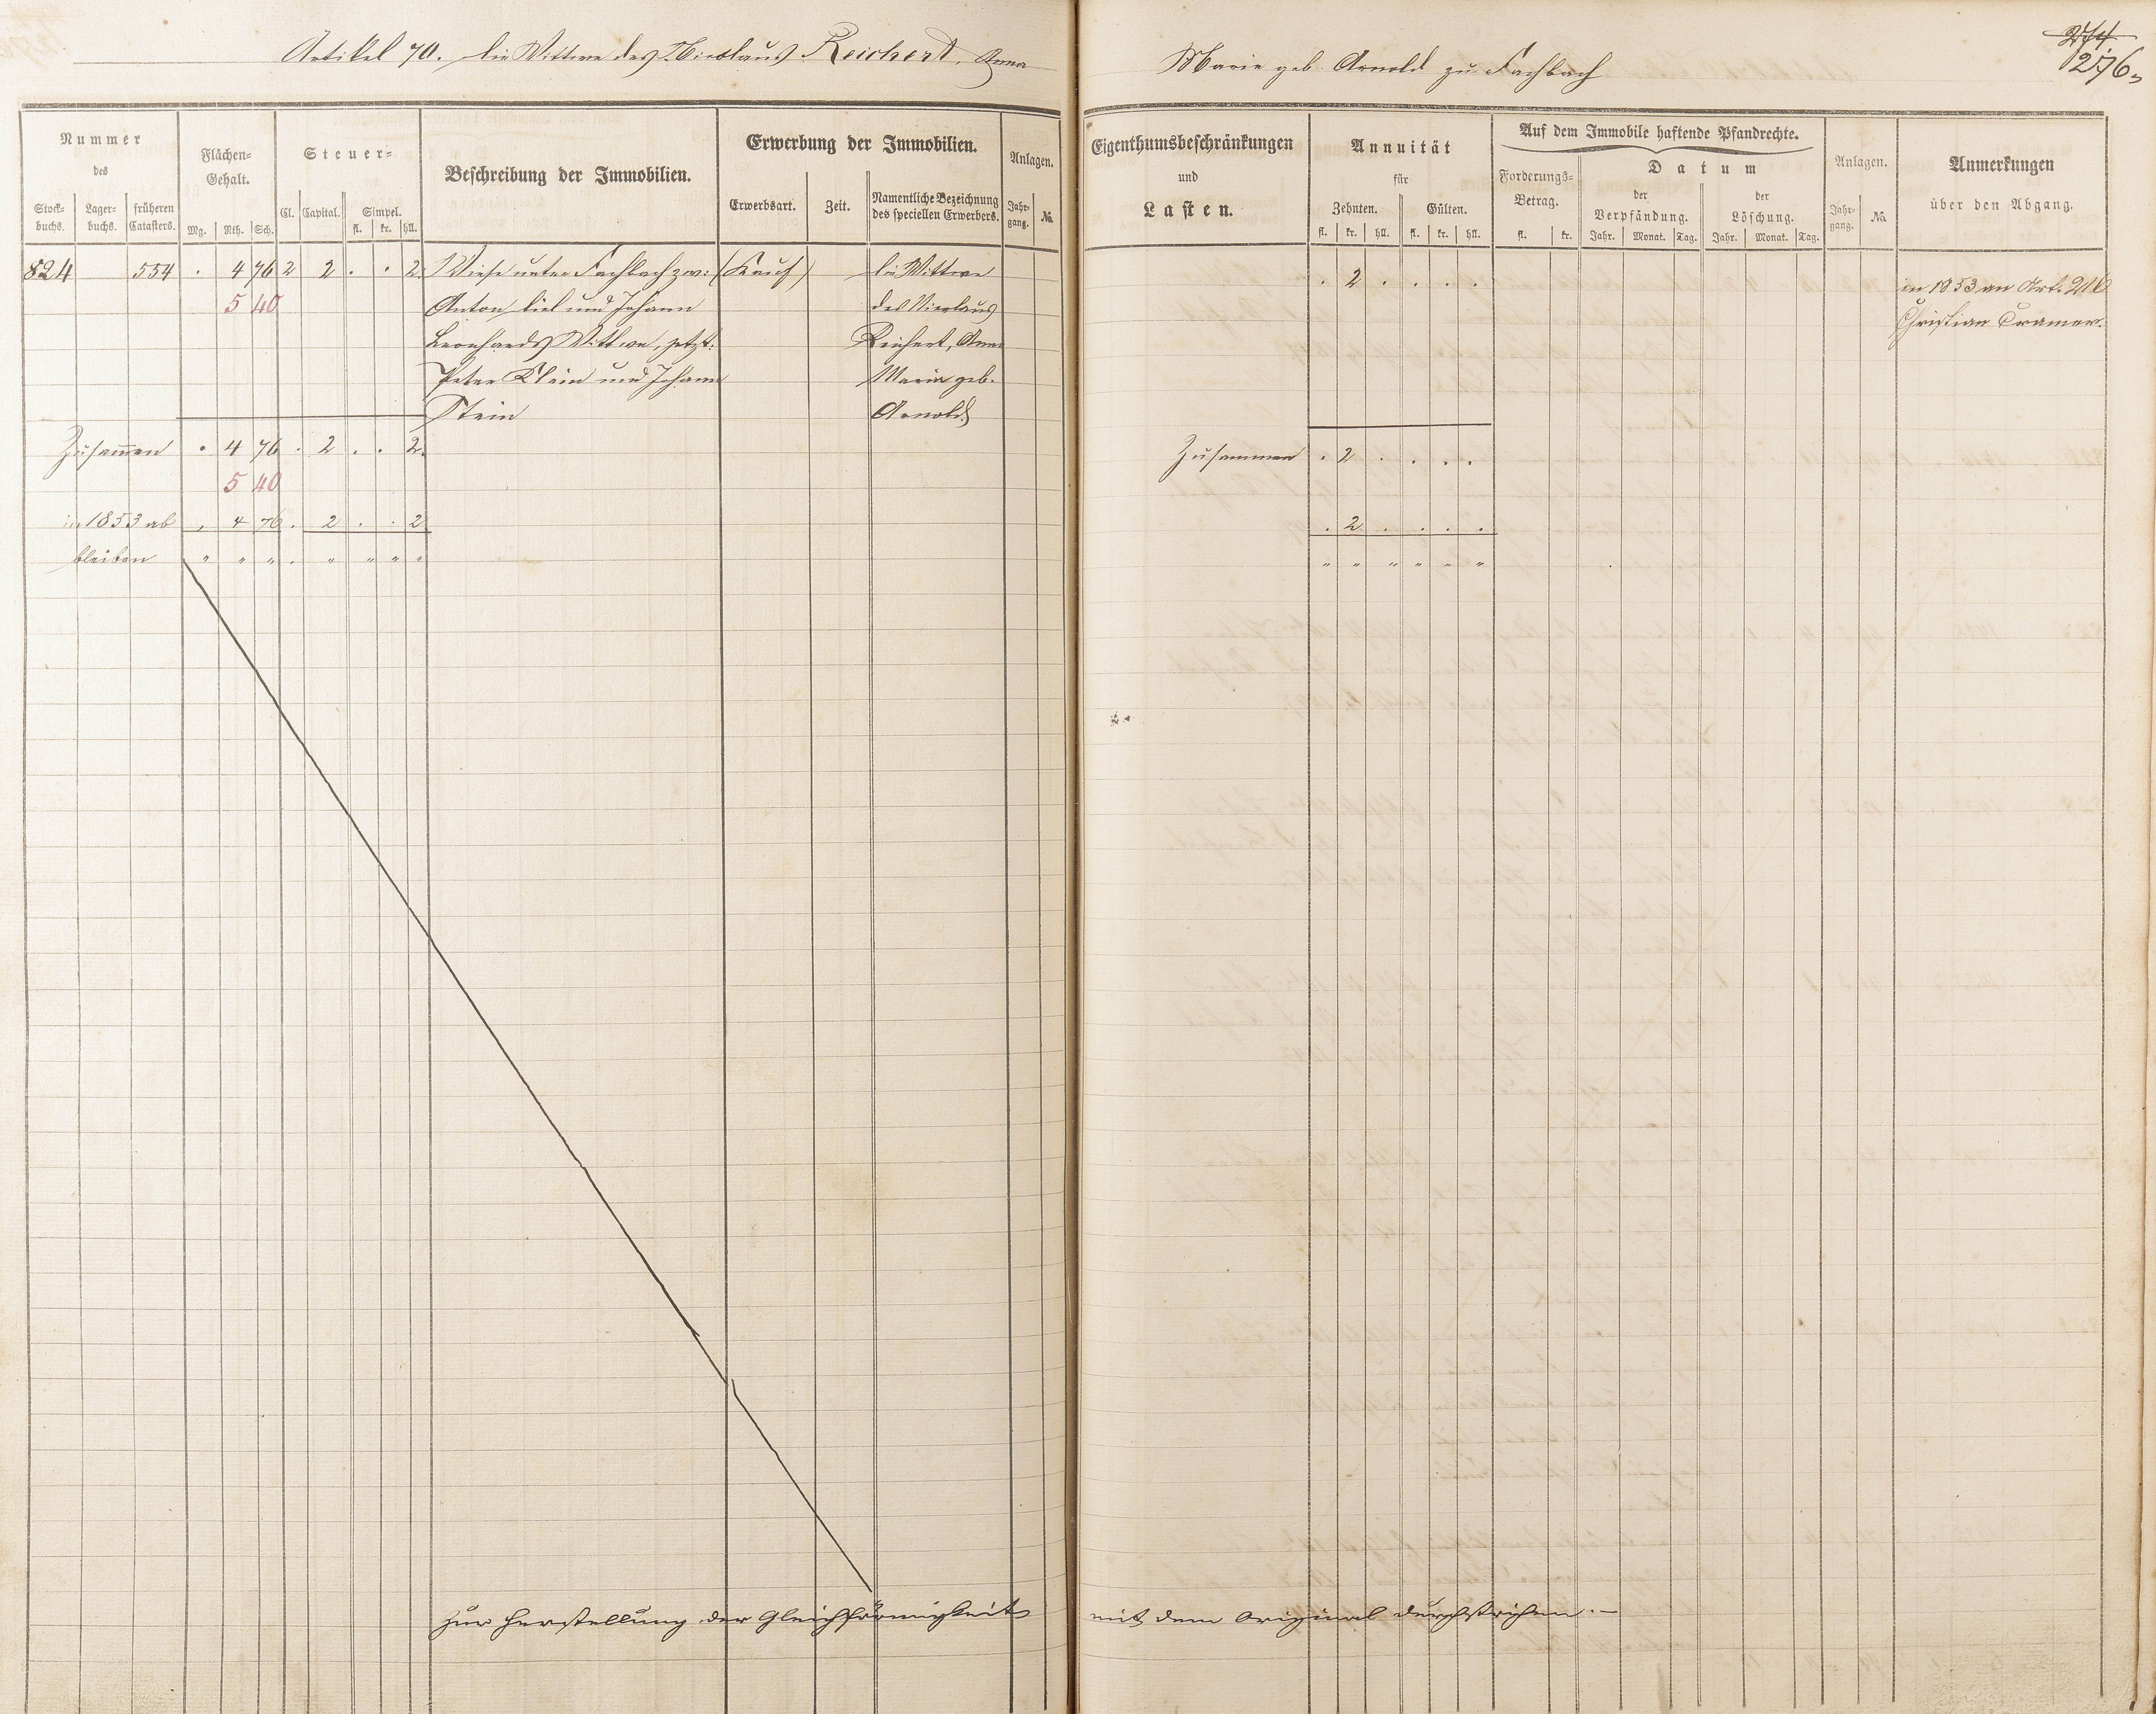 Artikel 70. die Wittwe des Nicolaus Reichert, Anna
Marie geb. Arnold zu Fachbach
274.
276
Nummer
des
Stock-
buchs.
Lager-
buchs.
früheren
Catasters.
Flächen-
Gehalt.
Mg. Rth. Sch.
Steuer-
Cl. Capital. Simpel.
fl. kr. hll.
Beschreibung der Immobilien.
Erwerbung der Immobilien.
Erwerbsart. Zeit. Namentliche Bezeichnung
des speciellen Erwerbers.
Anlagen.
Jahr-
gang. No.
Eigenthumsbeschränkungen
und
Lasten.
Annuität
für
Zehnten. Gülten.
fl. kr. hll. fl. kr. hll.
Auf dem Immobile haftende Pfandrechte.
Forderungs-
Betrag.
fl. kr.
Datum
der
Verpfändung.
Jahr. Monat. Tag.
der
Löschung.
Jahr. Monat. Tag.
Anlagen.
Jahr-
gang. No.
Anmerkungen
über den Abgang.
824 554 . 4 76 2 2 . . 2 Wiese unter Fachbach zw: (Kauf) die Wittwe
5 40 Anton Liel und Johann des Nicolaus
Leonhards Wittwe, jetzt: Reichert, Anna
Peter Klein und Johann Maria geb.
Stein Arnold
. 2 . . . .
in 1853 an Art. 216
Christian Cramer.
Zusammen . 4 76 . 2 . . 2.
5 40
in 1853 ab , 4 76 . 2 . . 2
bleiben " " " . " " " "
Zusammen . 2 . . . .
. 2 . . . .
" " " " " "
Zur Herstellung der Gleichförmigkeit mit dem Original durchstrichen. –